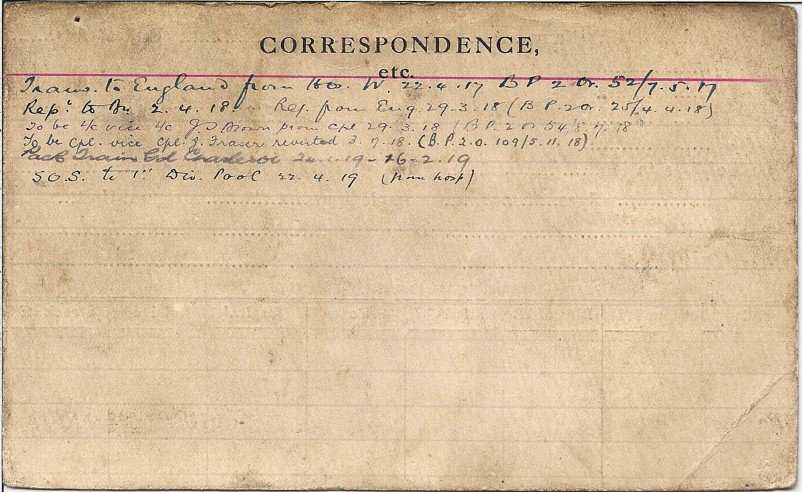 CORRESPONDENCE,
etc.
Trans. to England from Hos. W. 22.4.17 B P 2 Or. 52/7.5.17
Rep. to Bn 2.4.18 Rej. from Eng 29.3.18 (B P 2 Or. 25/4.4.18)
To be L/c vice L/c J. Brown prom Cpl 29.3.18 (B.P. 2 Or 54/8.7.18
To be Cpl. vice Cpl. J. Fraser reverted 3.7.18. (B.P. 2.O. 109/5.11.18)
Pack Train Gd Charleroi 24.1.19 - 26-2.19
S.O.S. to 1st Div. Pool 22.4.19 (from hosp)